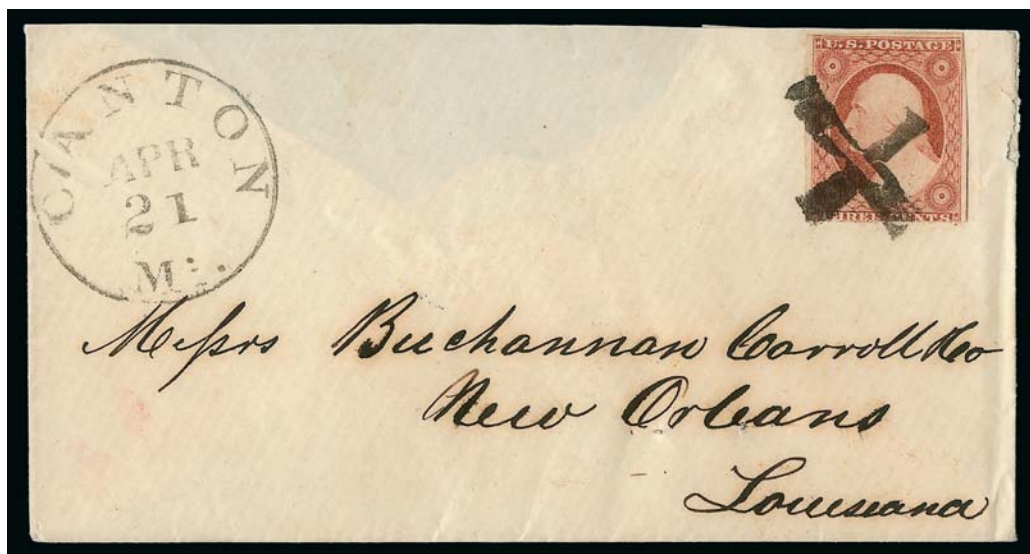 CANTON
APR
21
Mi.
U.S. POSTAGE
THREE CENTS
Messrs Buchannan Carroll & Co
New Orleans
Louiseana